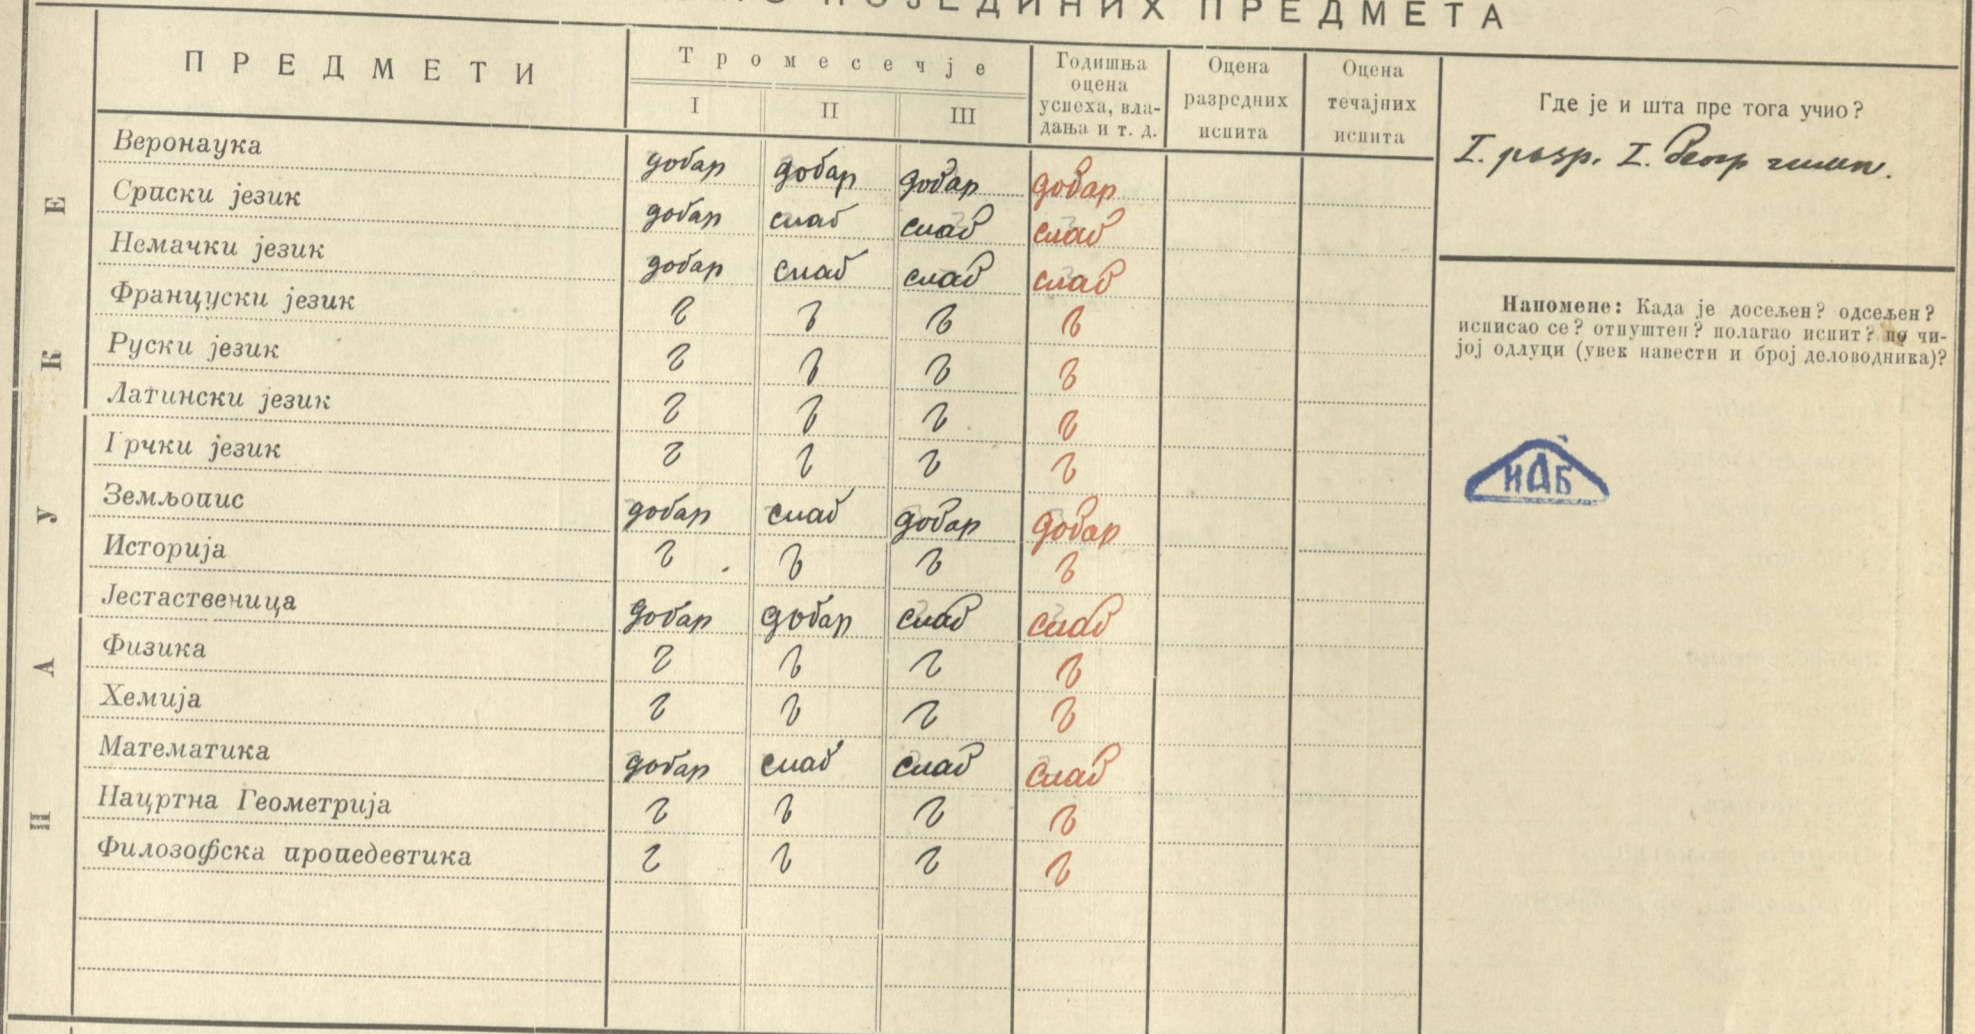 ПОЈЕДИНИХ ПРЕДМЕТА
ПРЕДМЕТИ
Тромесечје
I II III
Годишња оцена успеха, вла-
дања и т. д.
Оцена разредних испита
Оцена течајних испита
Где је и шта пре тога учио?
I. разр. I. беогр гимн.
НАУКЕ
Веронаука добар добар добар добар
Српски језик добар слаб слаб слаб
Немачки језик добар слаб слаб слаб
Француски језик
Руски језик
Латински језик
Грчки језик
Земљопис добар слаб добар добар
Историја
Јестаственица добар добар слаб слаб
Физика
Хемија
Математика добар слаб слаб слаб
Нацртна Геометрија
Филозофска пропедевтика
Напомене: Када је досељен? одсељен?
исписао се? отпуштен? полагао испит? по чи-
јој одлуци (увек навести и број деловодника)?
ИАБ